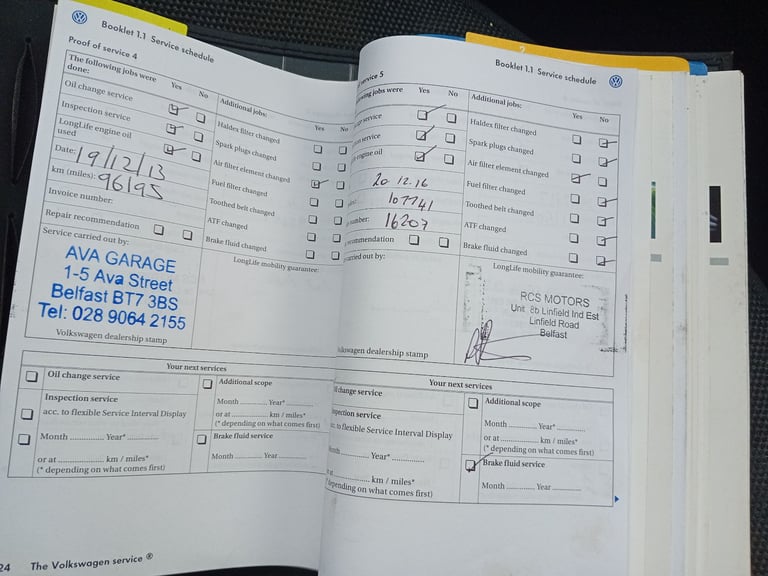 Booklet 1.1 Service schedule
Proof of service 4
The following jobs were done:
Yes
No
Oil change service
Inspection service
LongLife engine oil used
Date: 19/12/13
km (miles): 96195
Invoice number:
Repair recommendation
Service carried out by:
AVA GARAGE
1-5 Ava Street
Belfast BT7 3BS
Tel: 028 9064 2155
Volkswagen dealership stamp
Additional jobs:
Yes
No
Haldex filter changed
Spark plugs changed
Air filter element changed
Fuel filter changed
Toothed belt changed
ATF changed
Brake fluid changed
LongLife mobility guarantee:
Your next services
Oil change service
Inspection service
acc. to flexible Service Interval Display
Month ............ Year* ............
or at ............ km / miles*
(* depending on what comes first)
Additional scope
Month ............ Year* ............
or at ............ km / miles*
(* depending on what comes first)
Brake fluid service
Month ............ Year ............
24 The Volkswagen service ®
2
Booklet 1.1 Service schedule
service 5
owing jobs were
Yes
No
service
service
engine oil
20 12.16
107741
number: 16207
commendation
carried out by:
lkswagen dealership stamp
Additional jobs:
Yes
No
Haldex filter changed
Spark plugs changed
Air filter element changed
Fuel filter changed
Toothed belt changed
ATF changed
Brake fluid changed
LongLife mobility guarantee:
RCS MOTORS
Unit 8b Linfield Ind Est
Linfield Road
Belfast
Your next services
change service
spection service
to flexible Service Interval Display
Month ............ Year* ............
km / miles*
depending on what comes first)
Additional scope
Month ............ Year* ............
or at ............ km / miles*
(* depending on what comes first)
Brake fluid service
Month ............ Year ............